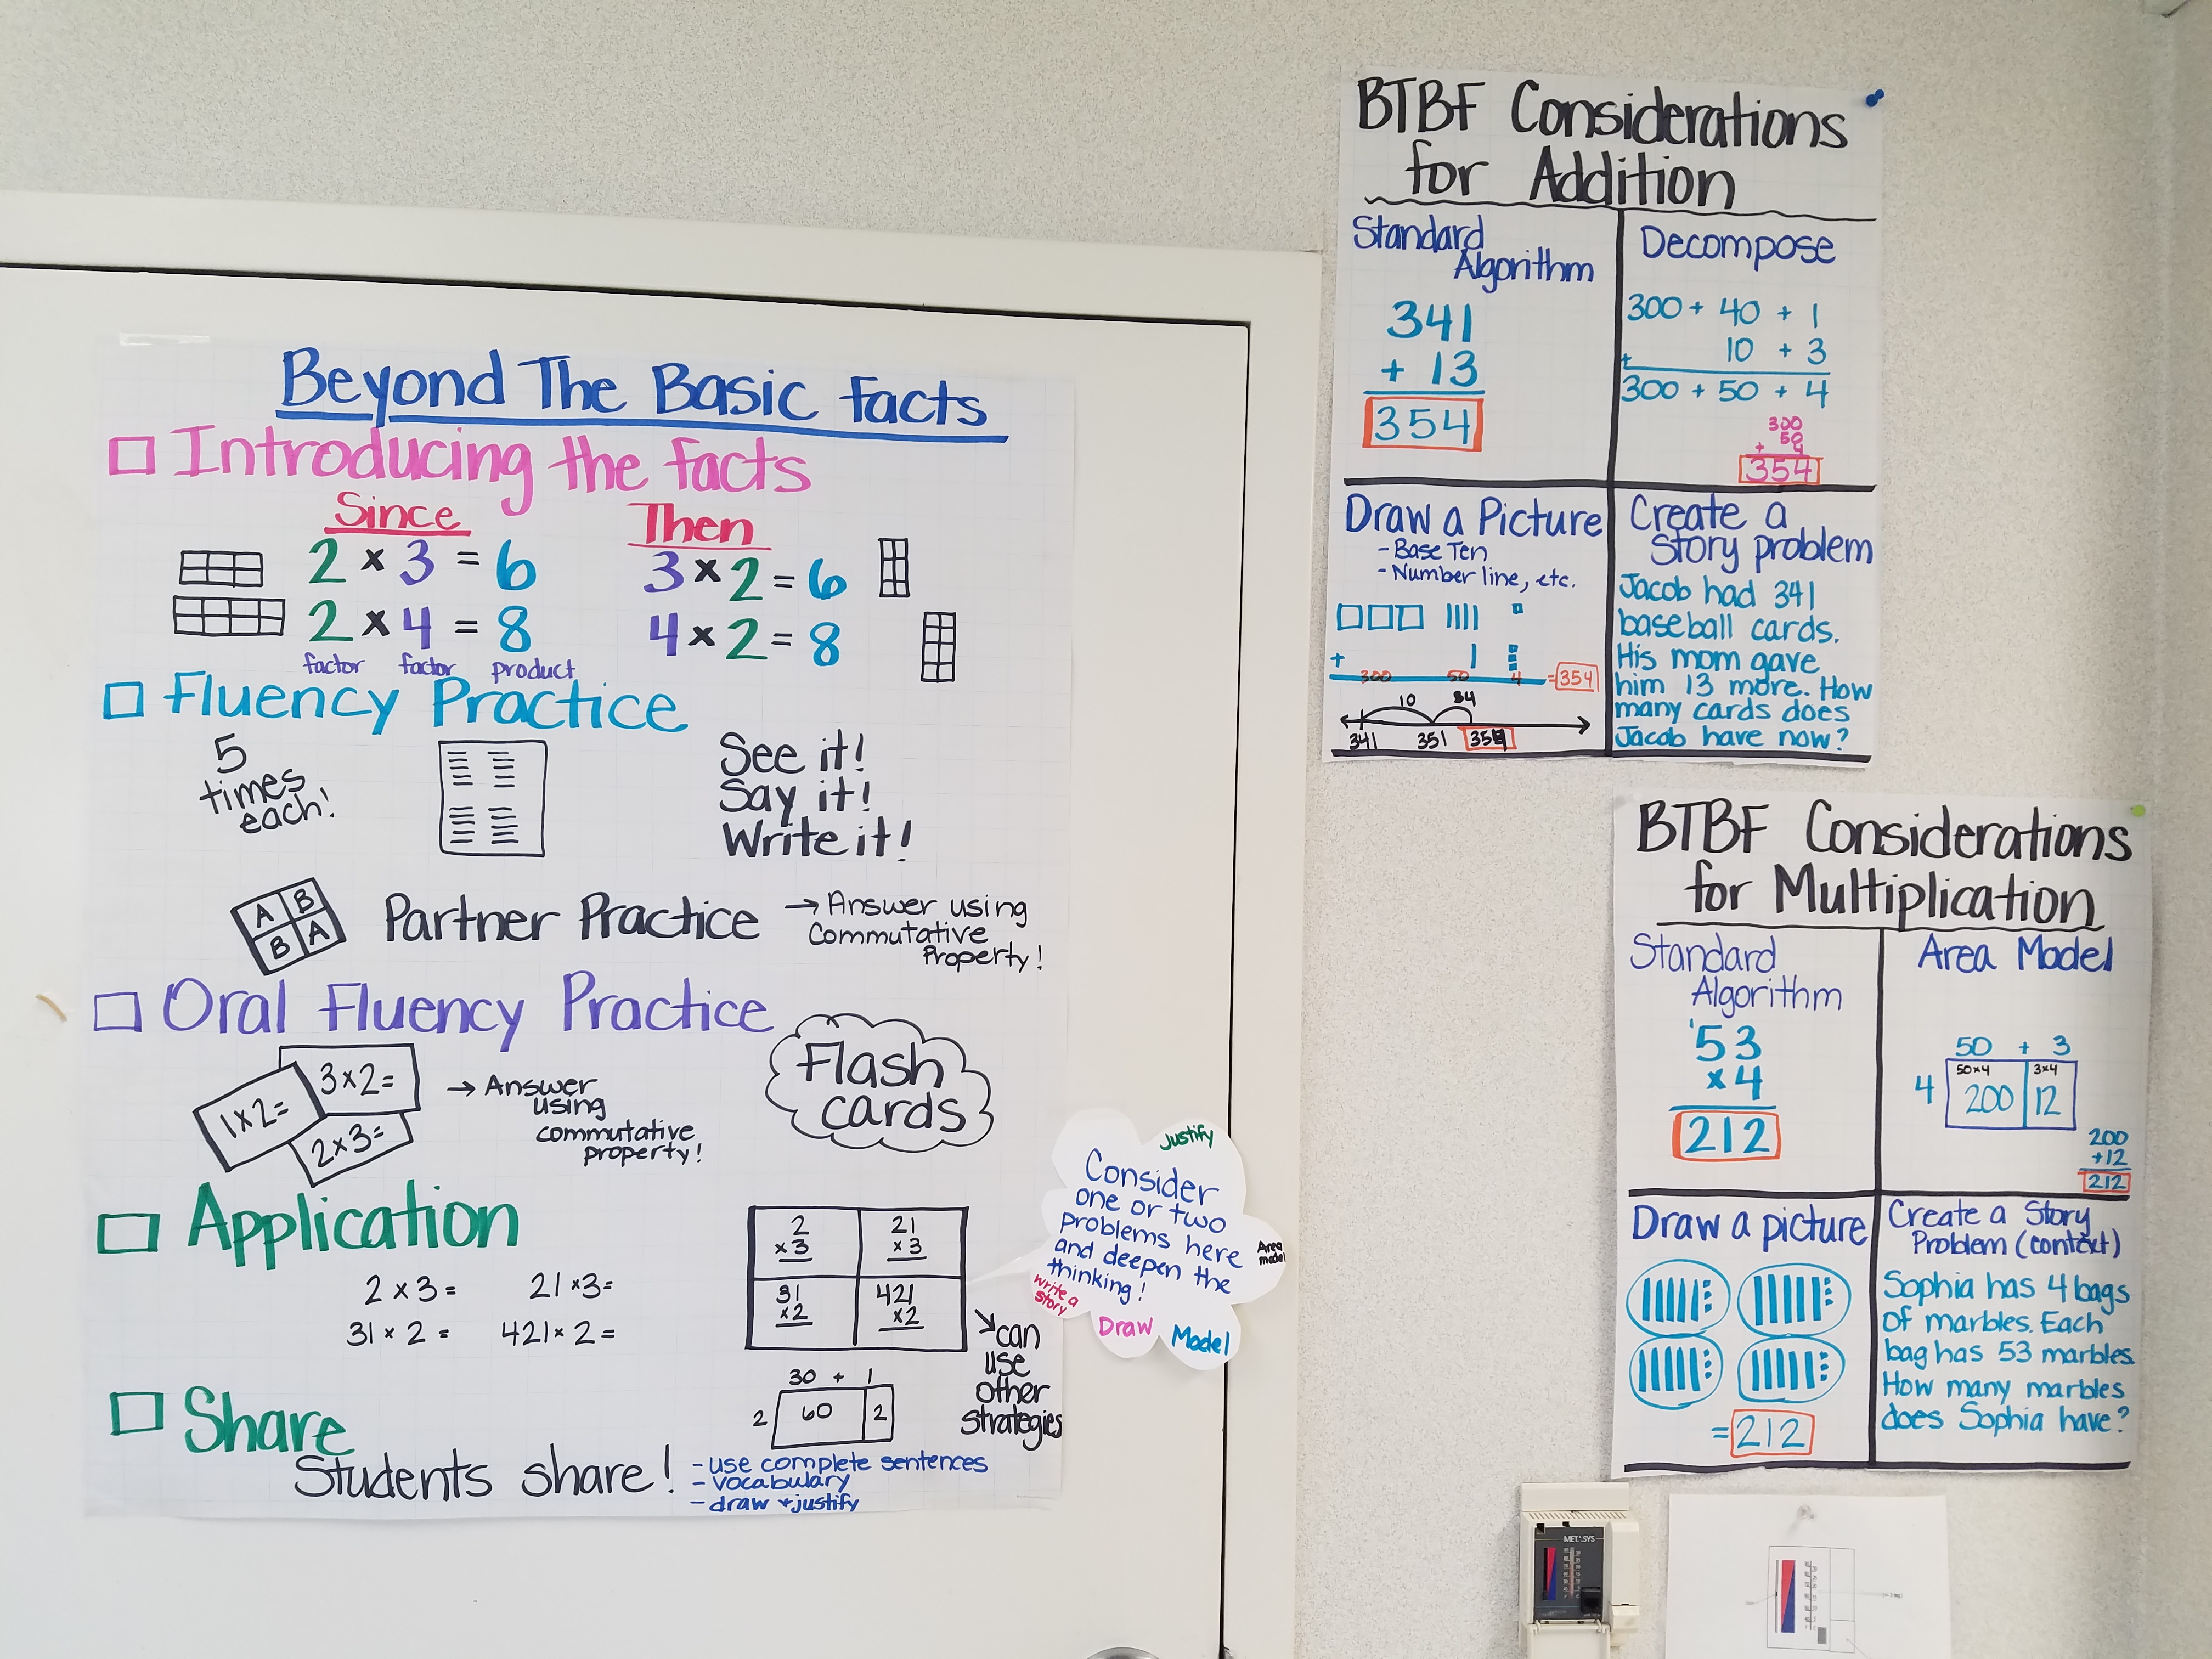 Beyond The Basic Facts
Introducing the facts
Since
Then
2 × 3 = 6
3 × 2 = 6
2 × 4 = 8
4 × 2 = 8
factor factor product
Fluency Practice
5
times
each!
See it!
Say it!
Write it!
A B
B A
Partner Practice
→ Answer using
Commutative
Property!
Oral Fluency Practice
1×2=
3×2=
2×3=
→ Answer
using
commutative
property!
Flash
cards
Application
2 × 3 =
21 ×3=
31 × 2 =
421 × 2 =
2
×3
21
×3
31
×2
421
×2
can
use
other
strategies
30 + 1
2
60
2
Share
Students share!
- use complete sentences
- vocabulary
- draw + justify
Justify
Consider
one or two
problems here
and deepen the
thinking!
Area
model
write a
story
Draw
Model
BTBF Considerations
for Addition
Standard
Algorithm
341
+ 13
354
Decompose
300 + 40 + 1
+ 10 + 3
300 + 50 + 4
300
50
+ 4
354
Draw a Picture
- Base Ten
- Number line, etc.
+
300 50 4 =354
10
341 351
Create a
Story problem
Jacob had 341
baseball cards.
His mom gave
him 13 more. How
many cards does
Jacob have now?
BTBF Considerations
for Multiplication
Standard
Algorithm
1
53
×4
212
Area Model
50 + 3
4
50×4
200
3×4
12
200
+12
212
Draw a picture
=212
Create a Story
Problem (context)
Sophia has 4 bags
of marbles. Each
bag has 53 marbles.
How many marbles
does Sophia have?